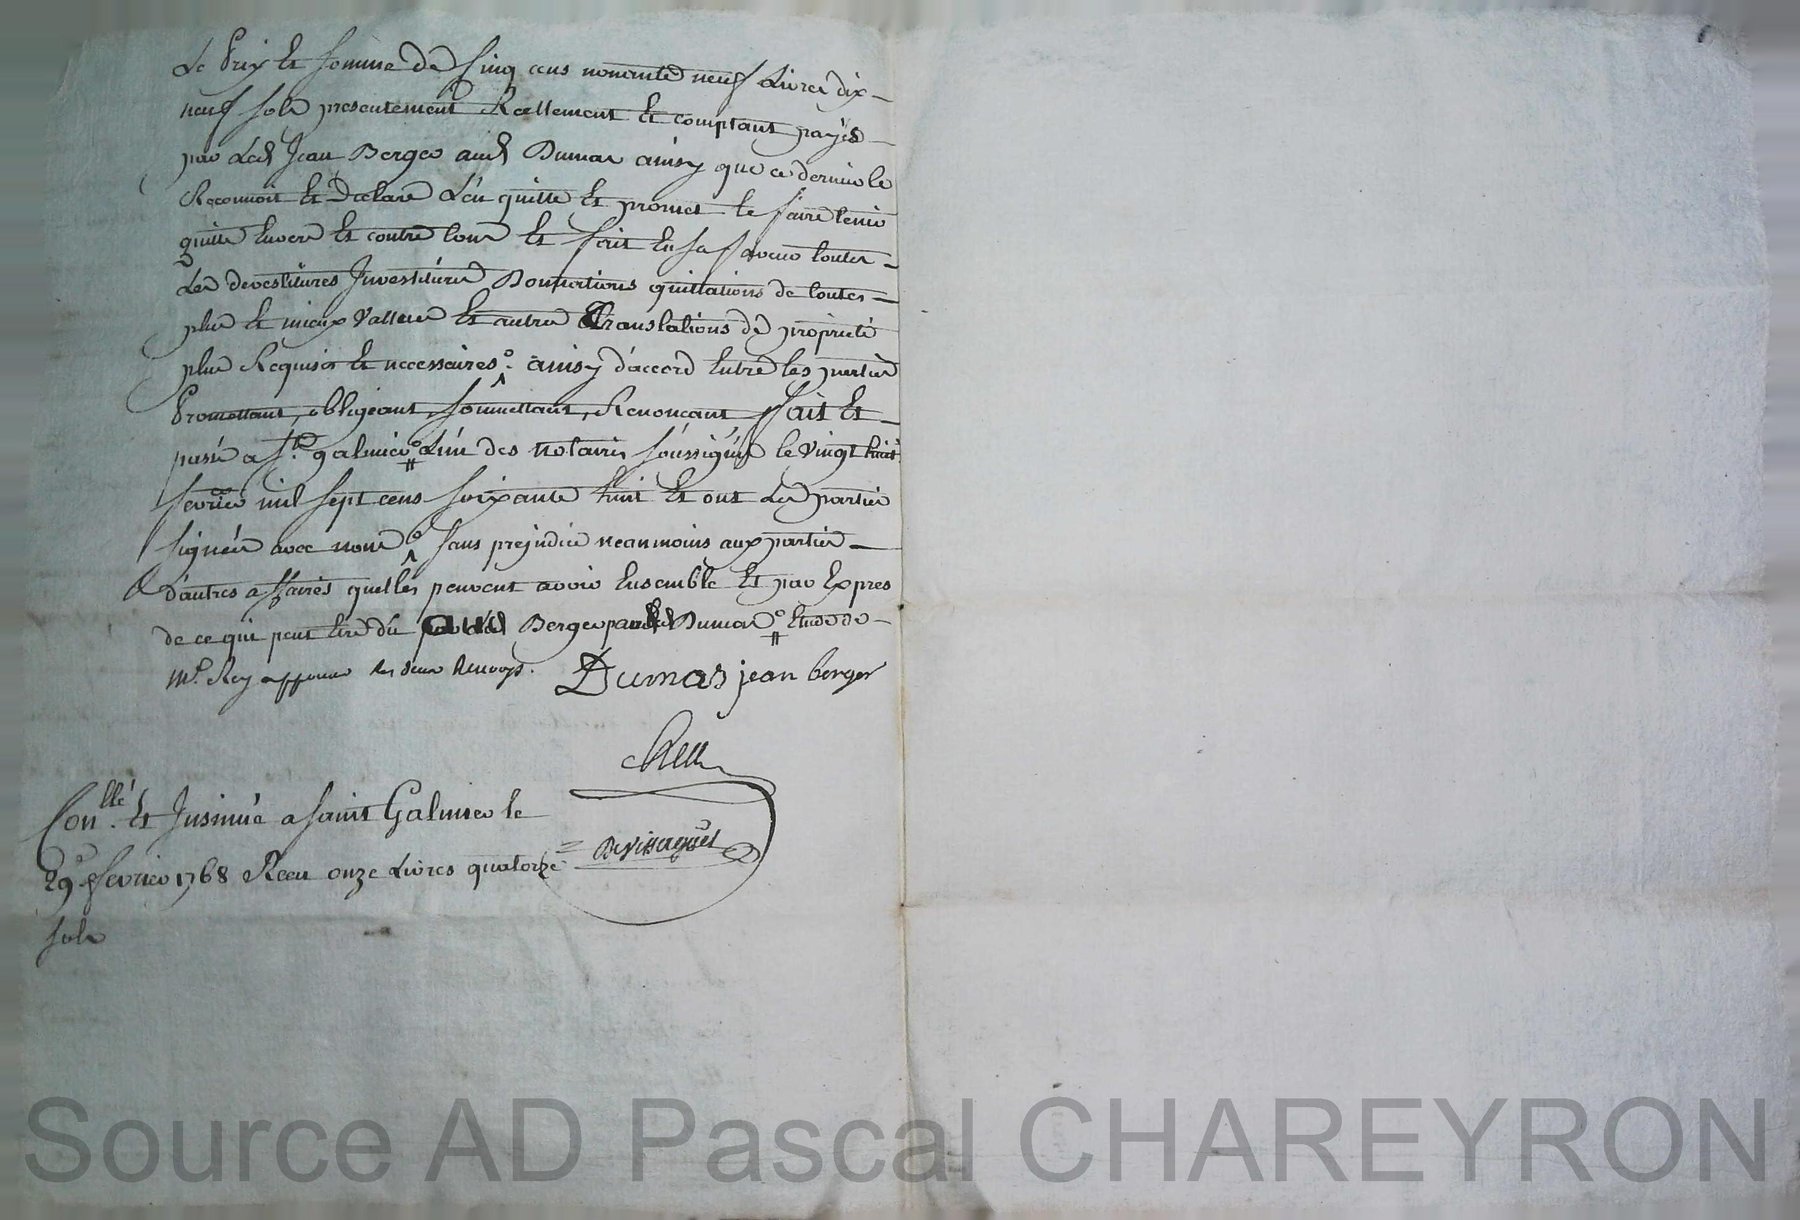 Le Prix Et somme de Cinq cens nonante neuf Livres dix –
neuf sols presentement Reellement Et comptant payés –
par Led Jean Berger aud Dumas ainsy que ce dernier le
Reconnoit Et Declare L'en quitte Et promet le faire tenir
quitte Envers Et contre tous Et fait En sa faveur toutes –
Les devestitures Investitures Donnations quittations de toutes –
plus Et mieux Vallues Et autres Translations de proprieté
plus Requises Et necessaires. ainsy d'accord Entre les parties
Promettant, obligeant, soumettant, Renonçant, fait Et –
passé a St. galmier L'un des notaires soussignés le vingt huit
fevrier mil sept cens soixante huit Et ont Les parties
signées avec nous sans prejudice neanmoins aux parties –
d'autres affaires quelles peuvent avoir Ensemble Et par Expres
de ce qui peut Etre du aud Berger par led Dumas Etude de –
Me. Rey approuvé les deux Renvoys. Dumas jean berger
Rey
Conllé. Et Insinué a saint Galmier le
29e fevrier 1768 Receu onze Livres quatorze
sols
Devissaguet
Source AD Pascal CHAREYRON